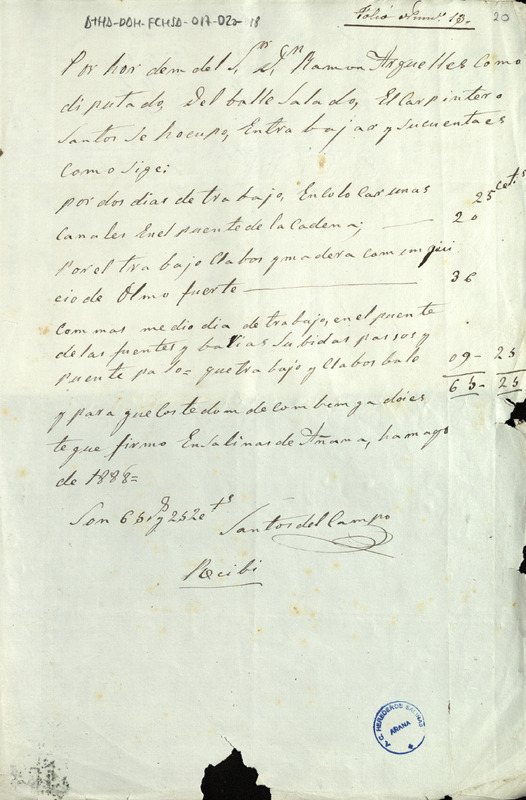 ATHA-DAH-FCHSA-017-020-18
Folio Num.º 18.
20
Por hor dem del S.or D.n Ramon Arguelles Como
di putado, Del balle Salado, El Carpintero
Santos Se hocupo, Entra bajar y su cuenta es
Como sige:
por dos dias de tra bajo, En Colo Car unas
25 cet.s
Canales En el puente de la Cadena; — 20
Por el tra bajo Clabos y madera Com
cio de Olmo fuerte — 36
Com mas medio dia de trabajo, en el puente
de las fuentes y barias Subidas passos y
puente = que tra bajo y Clabos balo 09-25
65-25
y para que Coste don de Com benga doi es
te que firmo En Salinas de Añana, ha mayo
de 1886=
Son 65 r y 25 Zet.s
Santos del Campo
Recibi
A.C. HEREDEROS SALINAS
AÑANA